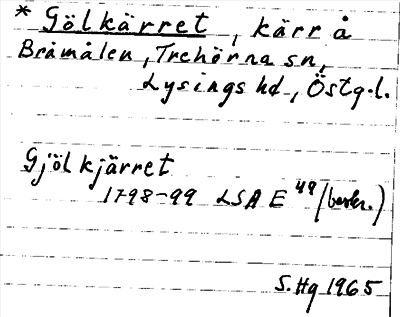 * Gölkärret, kärr å
Bråmålen, Trehörna sn,
Lysings hd, Östg.l.
Gjölkjärret
1798-99 LSA E 49 (beskr.)
S. Hg 1965